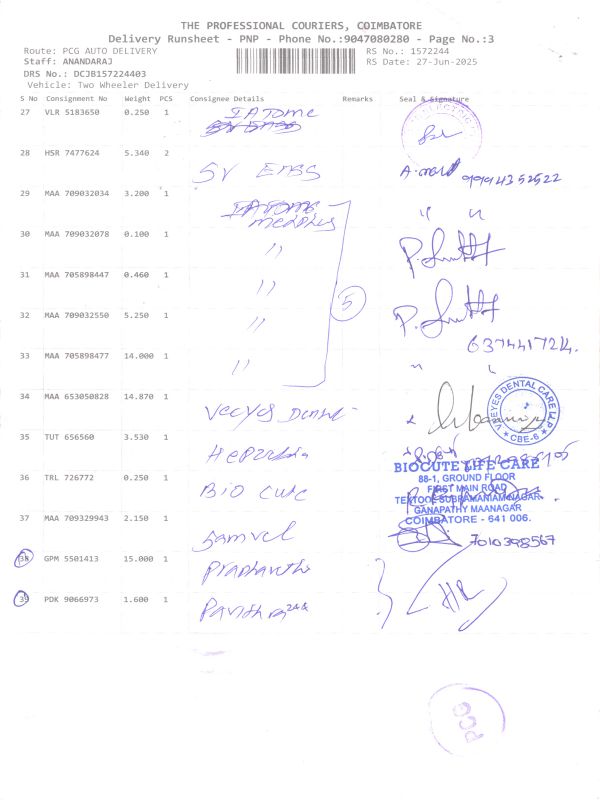 THE PROFESSIONAL COURIERS, COIMBATORE
Delivery Runsheet - PNP - Phone No.:9047080280 - Page No.:3
Route: PCG AUTO DELIVERY
RS No.: 1572244
Staff: ANANDARAJ
RS Date: 27-Jun-2025
DRS No.: DCJB157224403
Vehicle: Two Wheeler Delivery
S No Consignment No Weight PCS Consignee Details Remarks Seal & Signature
27 VLR 5183650 0.250 1 IATOME
28 HSR 7477624 5.340 2 SV ENSS 9994352522
29 MAA 709032034 3.200 1
30 MAA 709032078 0.100 1 "
31 MAA 705898447 0.460 1 "
5
32 MAA 709032550 5.250 1 "
6374417214.
33 MAA 705898477 14.000 1 "
34 MAA 653050828 14.870 1 Veeyes Dental
VEEYES DENTAL CARE LLP
CBE-6
35 TUT 656560 3.530 1
36 TRL 726772 0.250 1 Bio cute
BIOCUTE LIFE CARE
88-1, GROUND FLOOR
FIRST MAIN ROAD
TEXTOOL SUBRAMANIAM NAGAR
GANAPATHY MAANAGAR
COIMBATORE - 641 006.
37 MAA 709329943 2.150 1 Samvel 7010398567
38 GPM 5501413 15.000 1 Prashanth
39 PDK 9066973 1.600 1 Pavithra
PCG